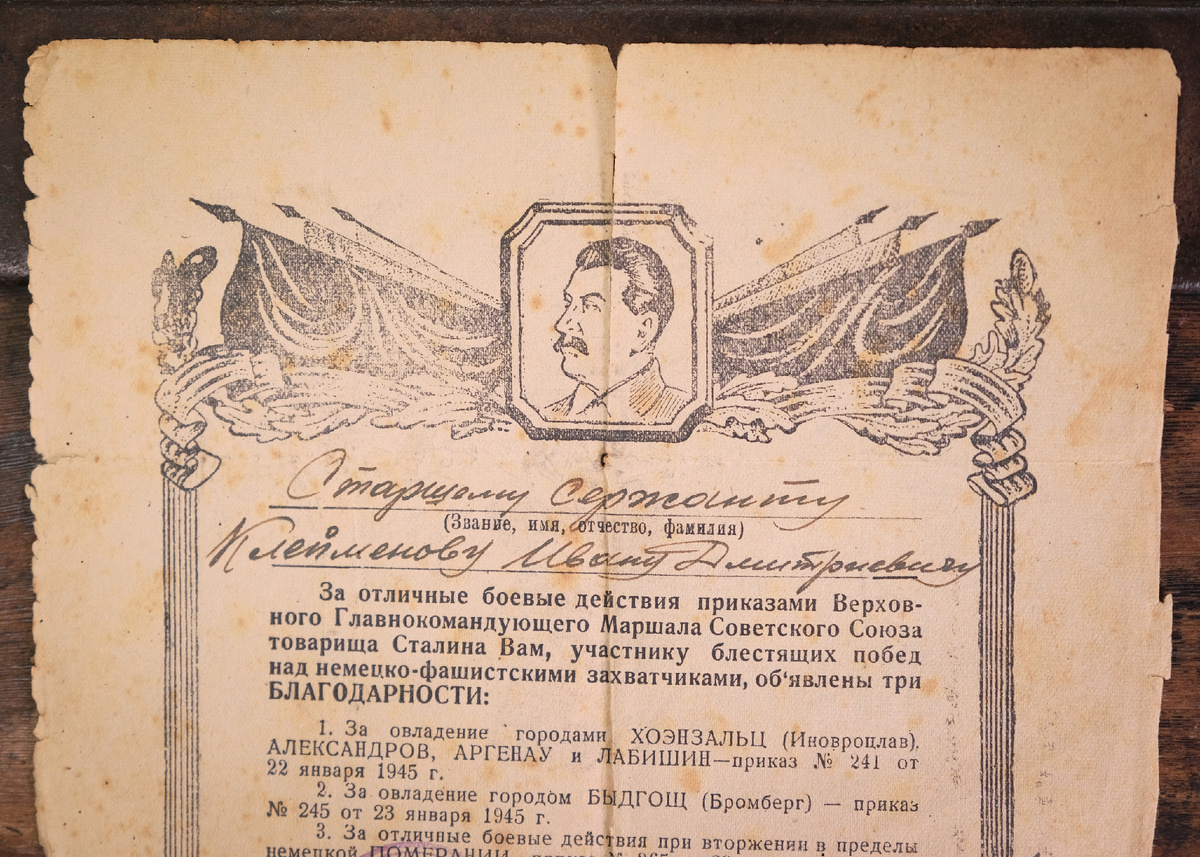 Старшему сержанту
(Звание, имя, отчество, фамилия)
Клейменову Ивану Дмитриевичу
За отличные боевые действия приказами Верхов-
ного Главнокомандующего Маршала Советского Союза
товарища Сталина Вам, участнику блестящих побед
над немецко-фашистскими захватчиками, об‘явлены три
БЛАГОДАРНОСТИ:
1. За овладение городами ХОЭНЗАЛЬЦ (Иновроцлав),
АЛЕКСАНДРОВ, АРГЕНАУ и ЛАБИШИН—приказ № 241 от
22 января 1945 г.
2. За овладение городом БЫДГОЩ (Бромберг) — приказ
№ 245 от 23 января 1945 г.
3. За отличные боевые действия при вторжении в пределы
немецкой ПОМЕРАНИИ